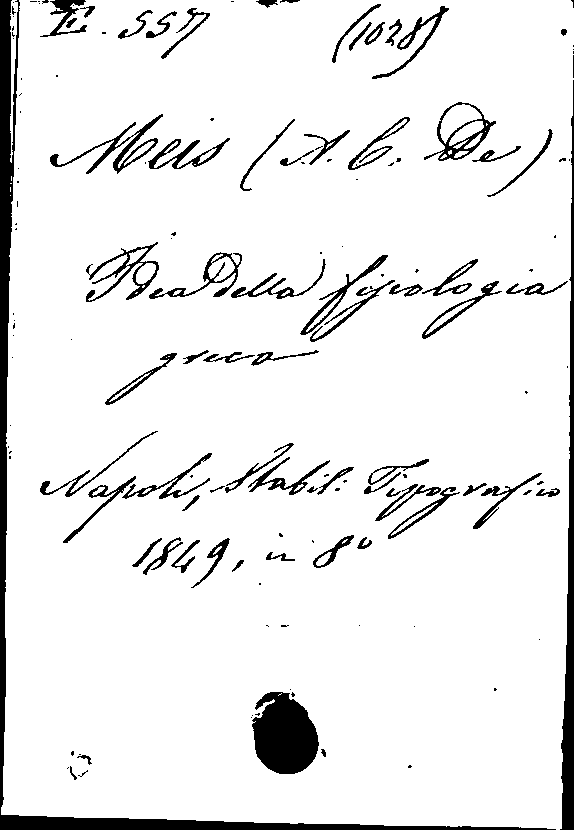 E. 557 (1028)
Meis (A. C. De)
Idea della fisiologia
greca
Napoli, Stabil: Tipografico
1849, in 8º